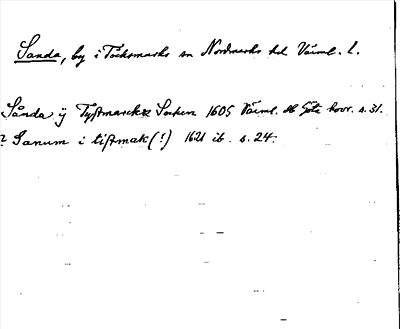 Sanda, by i Töcksmarks sn Nordmarks hd Värml. l.
Sånda ÿ Tyssmarckz Sochen 1605 Värml. Götz hovr. s. 31.
? Sanum i tissmak (!) 1621 ib. s. 24.